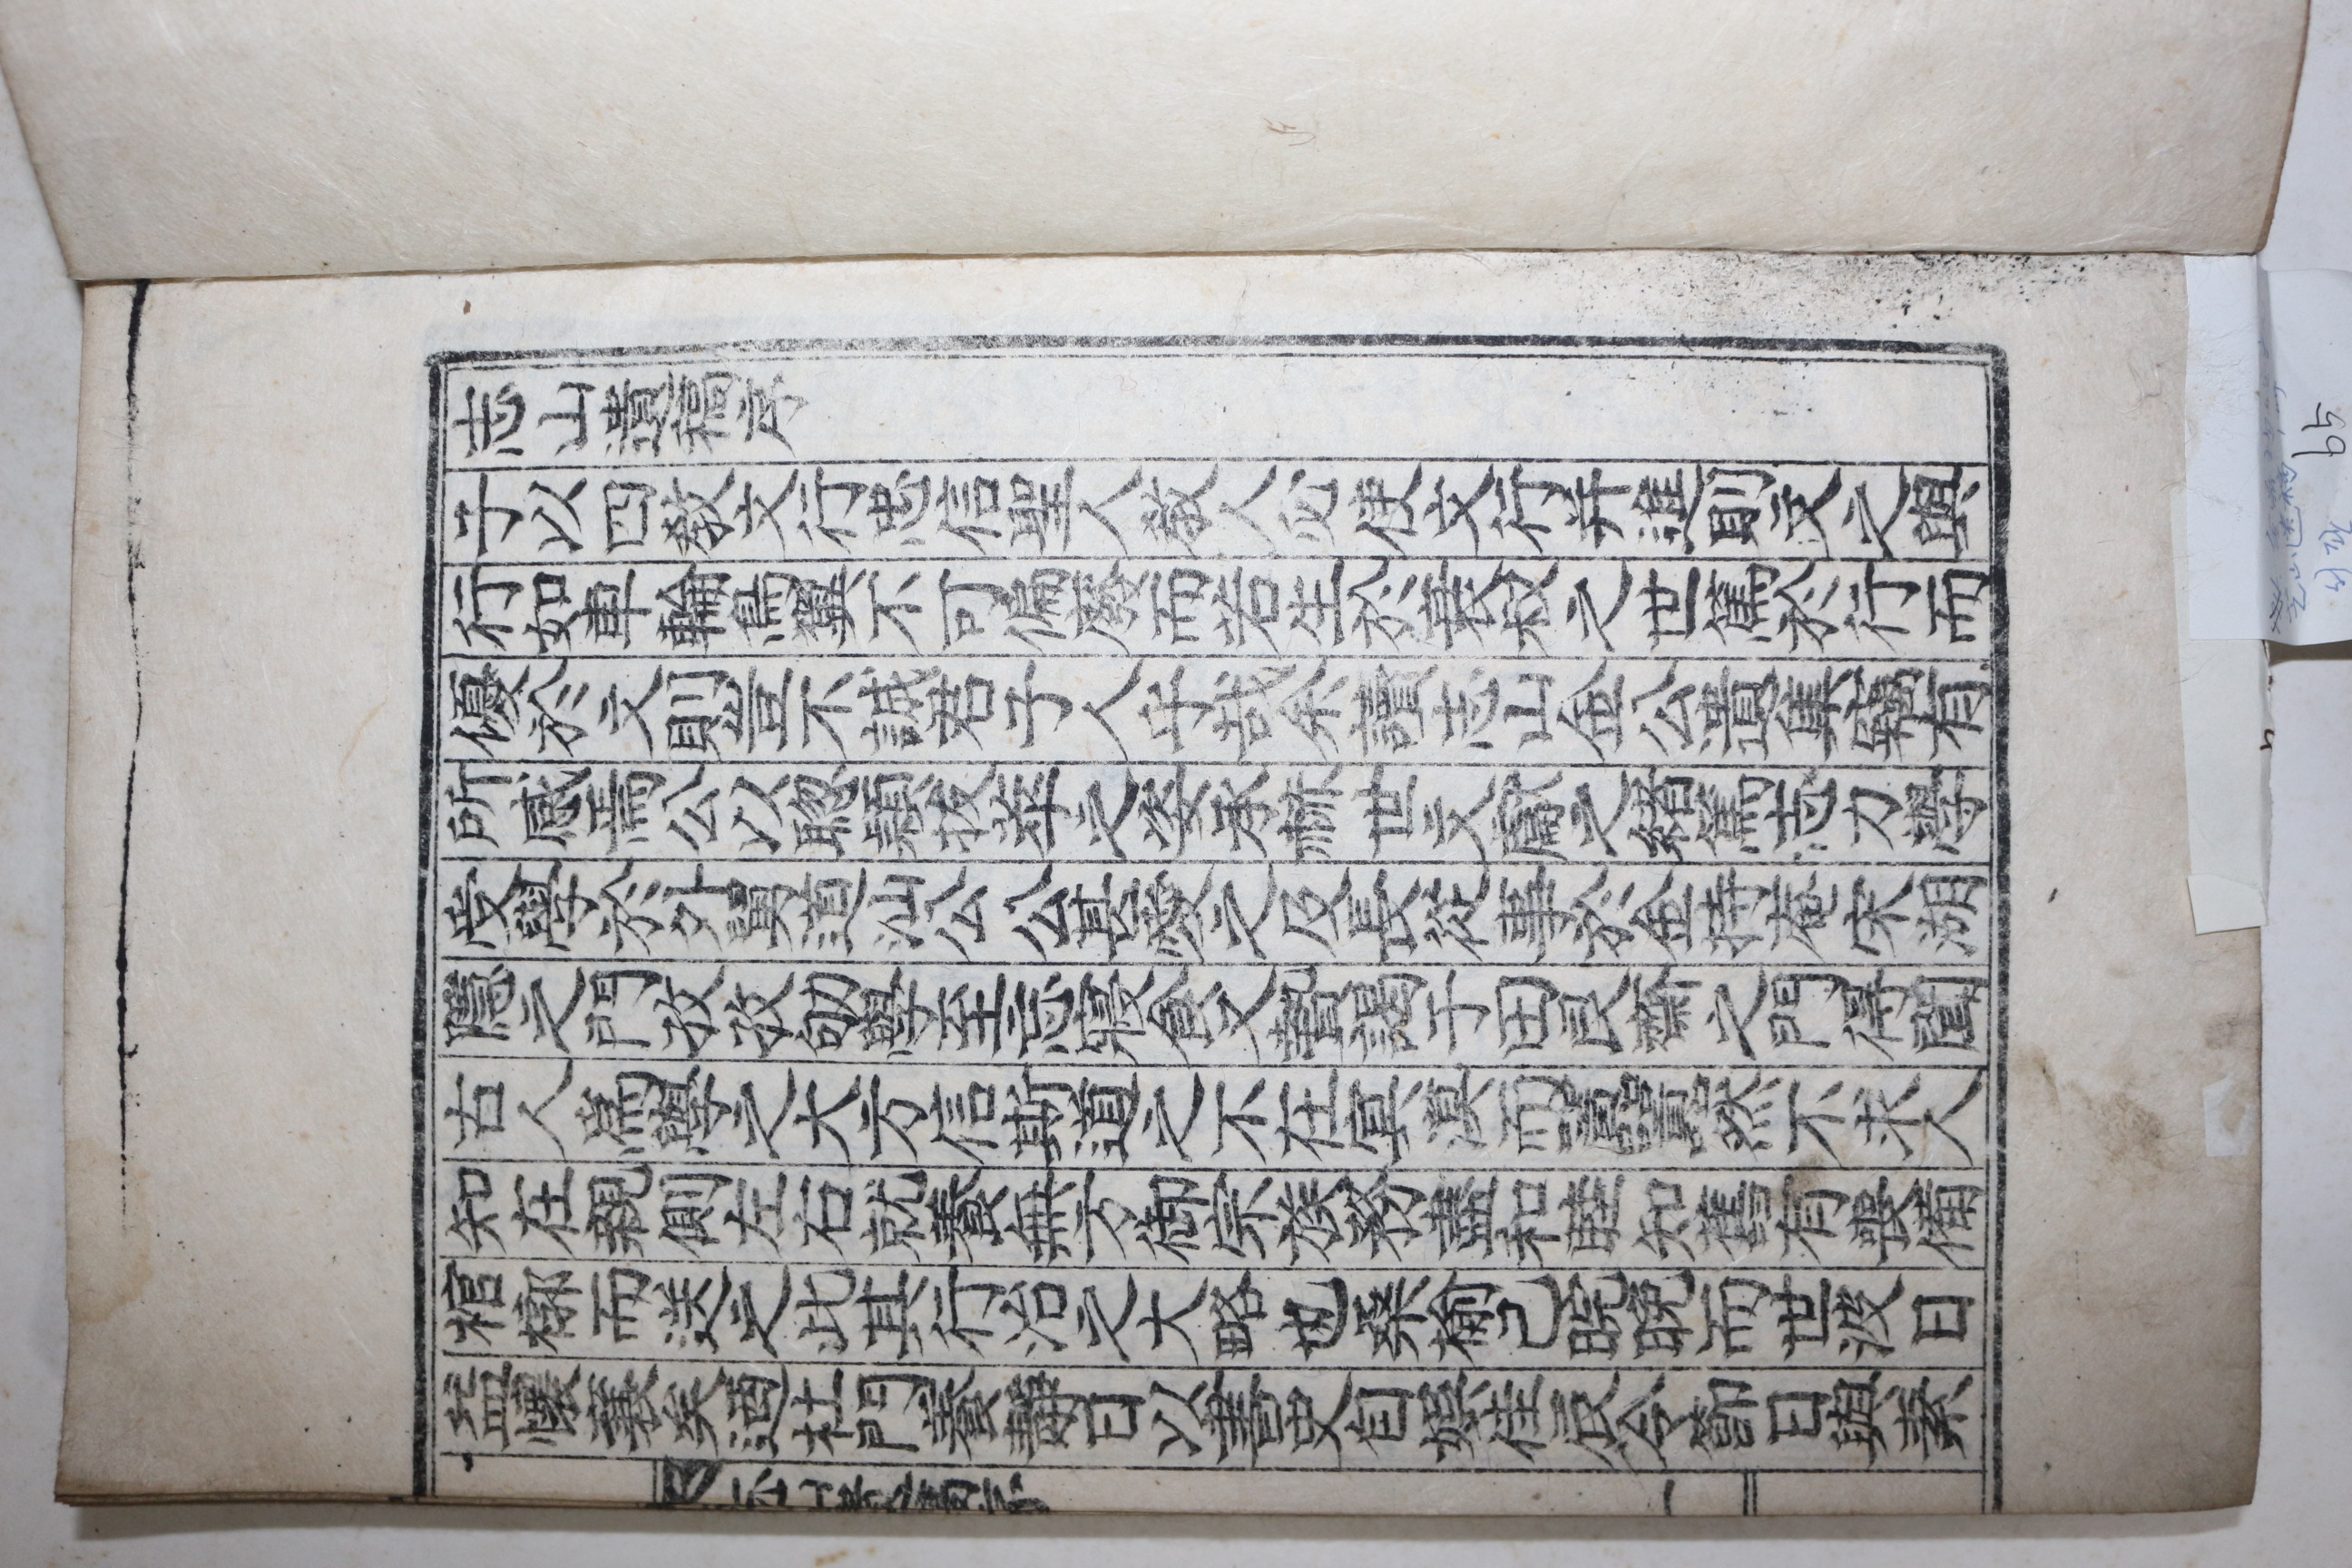 志山遺稿序
子以四教文行忠信聖人敎人必使文行并進則文之與
行如車輪鳥翼不可偏廢而若生於衰叔之世篤於行而
優於文則豈不誠君子人乎哉余讀志山金公遺集竊有
所感焉公以聡穎拔萃之姿承赫世文獻之緖篤志力學
受學於外舅道汕公公甚愛之及長從事於金持庵宋湖
隱之門孜孜劬學至忘寢食又贄謁于田艮齋之門得聞
古人爲學之大方信斯道之不在冥漠而囂囂然不求人
知在親側左右就養無方御宗族務盡和睦知舊有喪備
棺槨而送之此其行治之大略也桑楡已晼晚而世波日
益懷襄矣迺杜門養靜日以書史自娛佳辰令節日與素
一
65